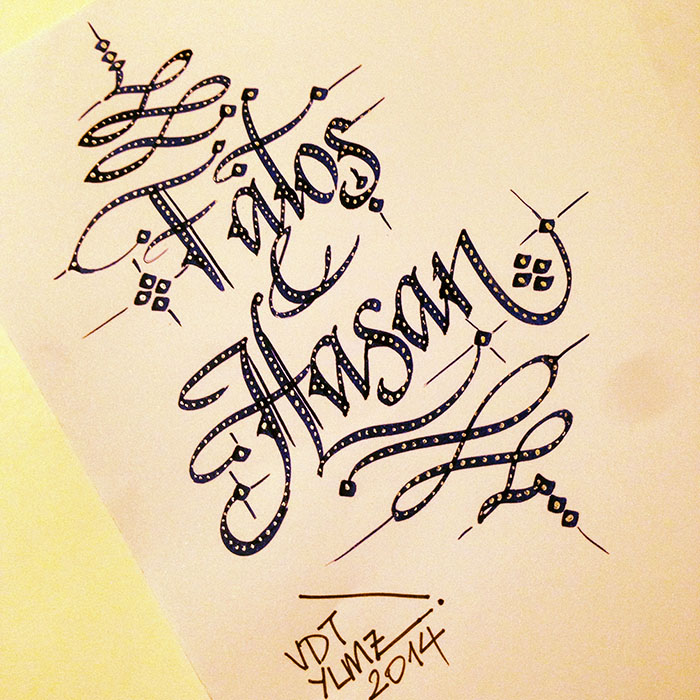 Fatoş
Hasan
VDT
YLMZ
2014